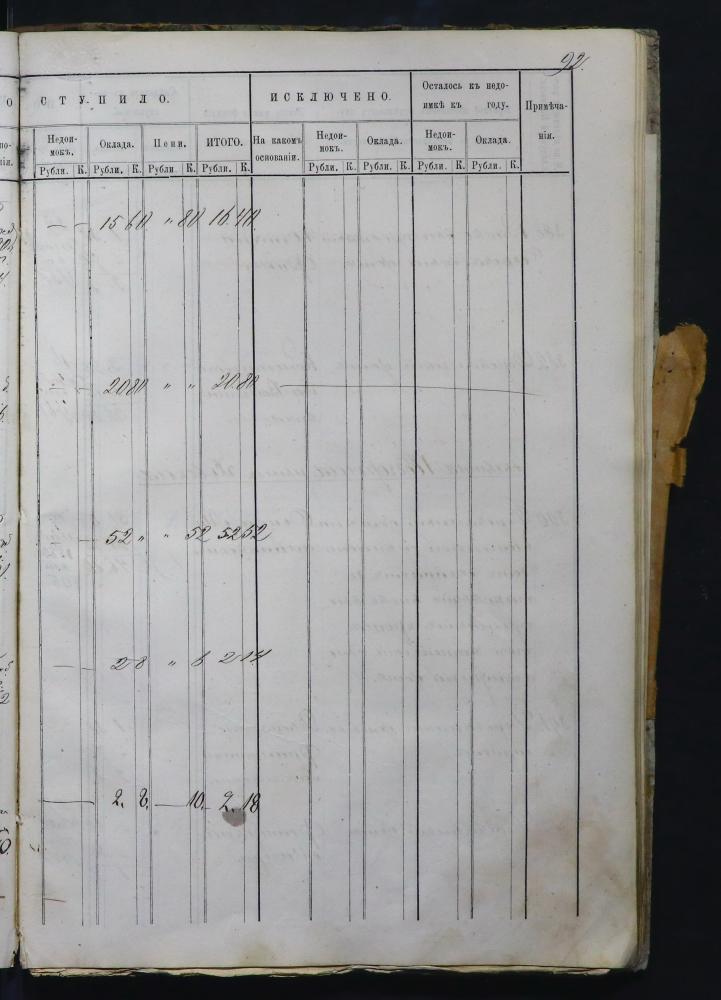 92.
О СТУПИЛО. ИСКЛЮЧЕНО. Осталось къ недо-
имкѣ къ году. Примѣча-
нія.
Недои-
мокъ. Оклада. Пени. ИТОГО. На какомъ
основаніи. Недои-
мокъ. Оклада. Недои-
мокъ. Оклада.
Рубли. К. Рубли. К. Рубли. К. Рубли. К. Рубли. К. Рубли. К. Рубли. К. Рубли. К.
— — 15 60 „ 80 16 40
— — 20 80 „ „ 20 80 —
— — 52 „ „ 52 52 52
— — 2 8 „ 6 2 14
— 2. 8. — 10 2. 18